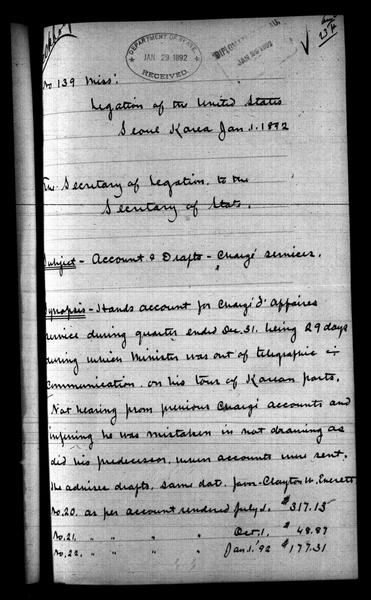 DEPARTMENT OF STATE,
JAN 29 1892
RECEIVED
DIPLOMATIC BU.
JAN 29 1892
No 139 Miss:
Legation of the United States
Seoul Korea Jan. 1. 1892
The Secretary of Legation, to the
Secretary of State.
Subject - Account & Drafts - Chargé services.
Synopsis - Hands account for Chargé d'Affaires
service during quarter ended Dec. 31. being 29 days
during which Minister was out of telegraphic
communication, on his tour of Korean ports.
Not hearing from previous Chargé accounts and
inferring he was mistaken in not drawing as
did his predecessor, when accounts were sent,
he advises drafts, same date, favor - Clayton W. Everett
No. 20. as per account rendered July 1. $317.15
No. 21. " " " " Oct. 1. $ 48.87
No. 22. " " " " Jan. 1. '92 $177.31